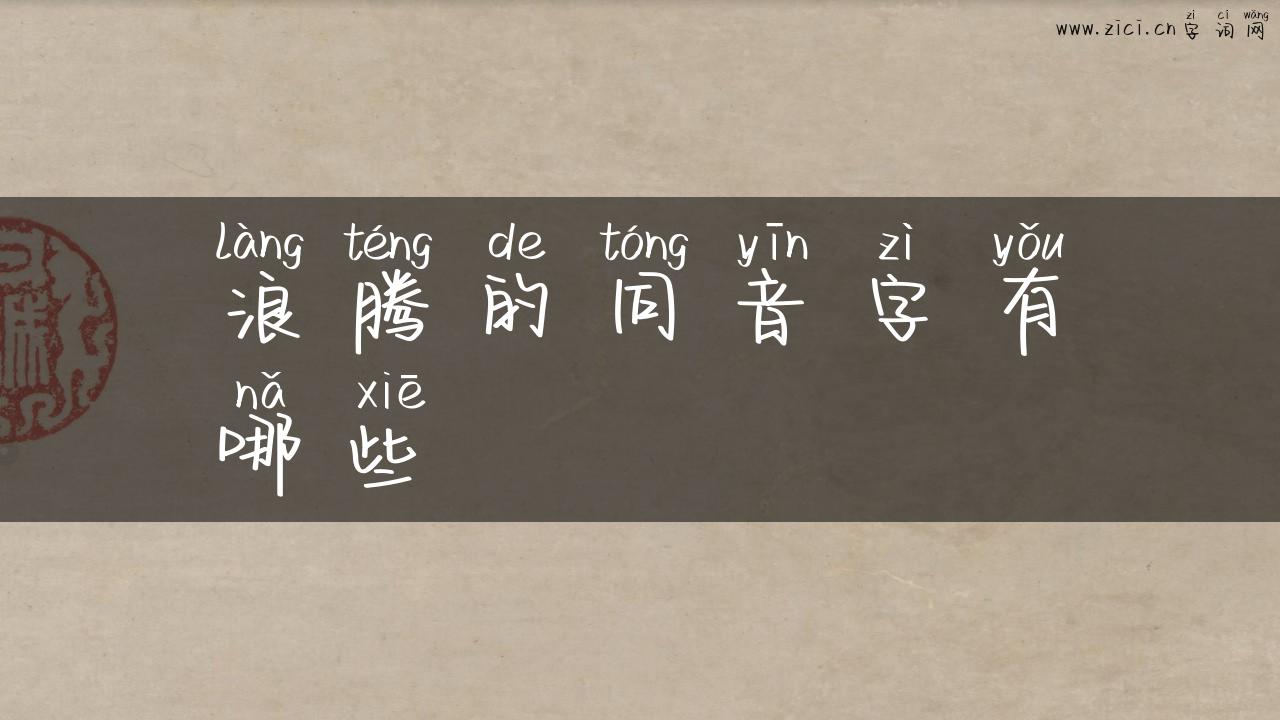 zì cí wǎng
www.zici.cn字词网
làng téng de tóng yīn zì yǒu
浪腾的同音字有
nǎ xiē
哪些